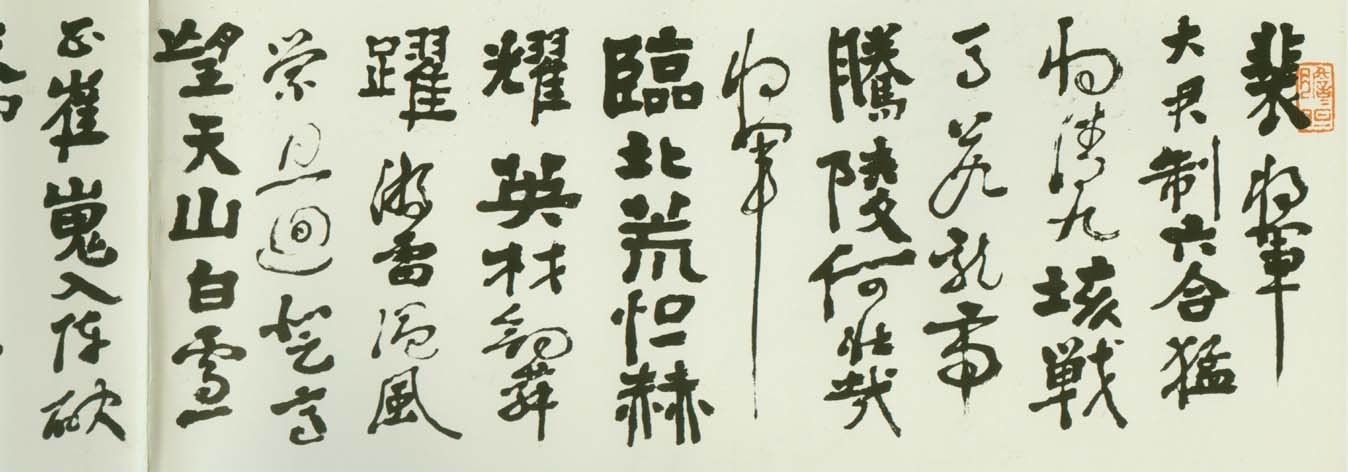 裴將軍
大君制六合猛
將清九垓戰
馬若龍虎
騰陵何壯哉
將軍
臨北荒恒赫
耀英材劍舞
躍游雷隨風
縈且迴登高
望天山白雲
正崔嵬入陣破